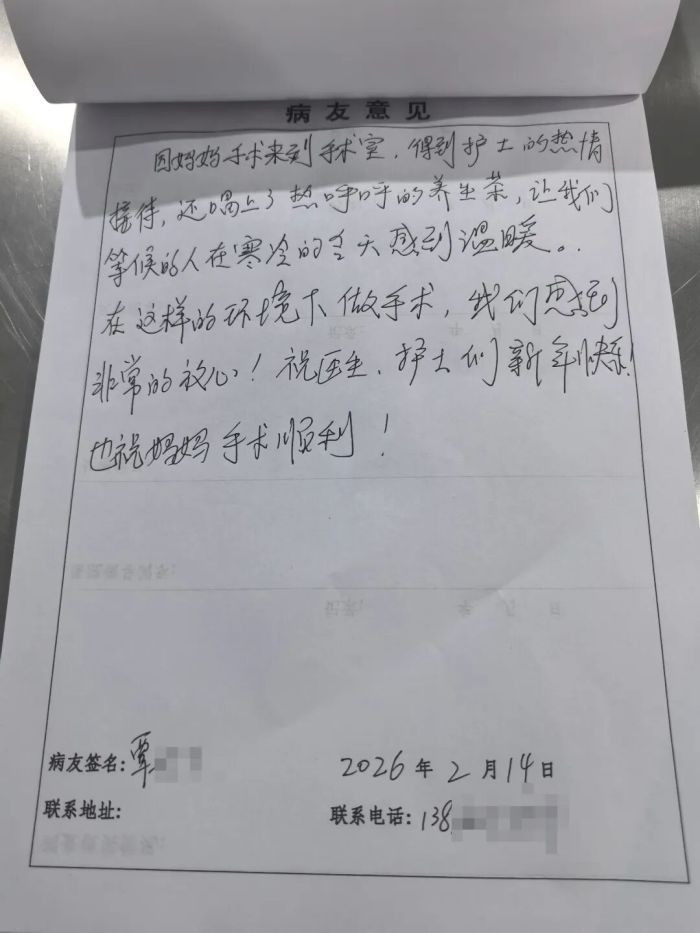 病友意见
因妈妈手术来到手术室，得到护士的热情
接待，还喝上了热呼呼的养生茶，让我们
等候的人在寒冷的冬天感到温暖。
在这样的环境下做手术，我们感到
非常的放心！祝医生、护士们新年快乐！
也祝妈妈手术顺利！
病友签名：覃
2026年2月14日
联系地址：
联系电话：138